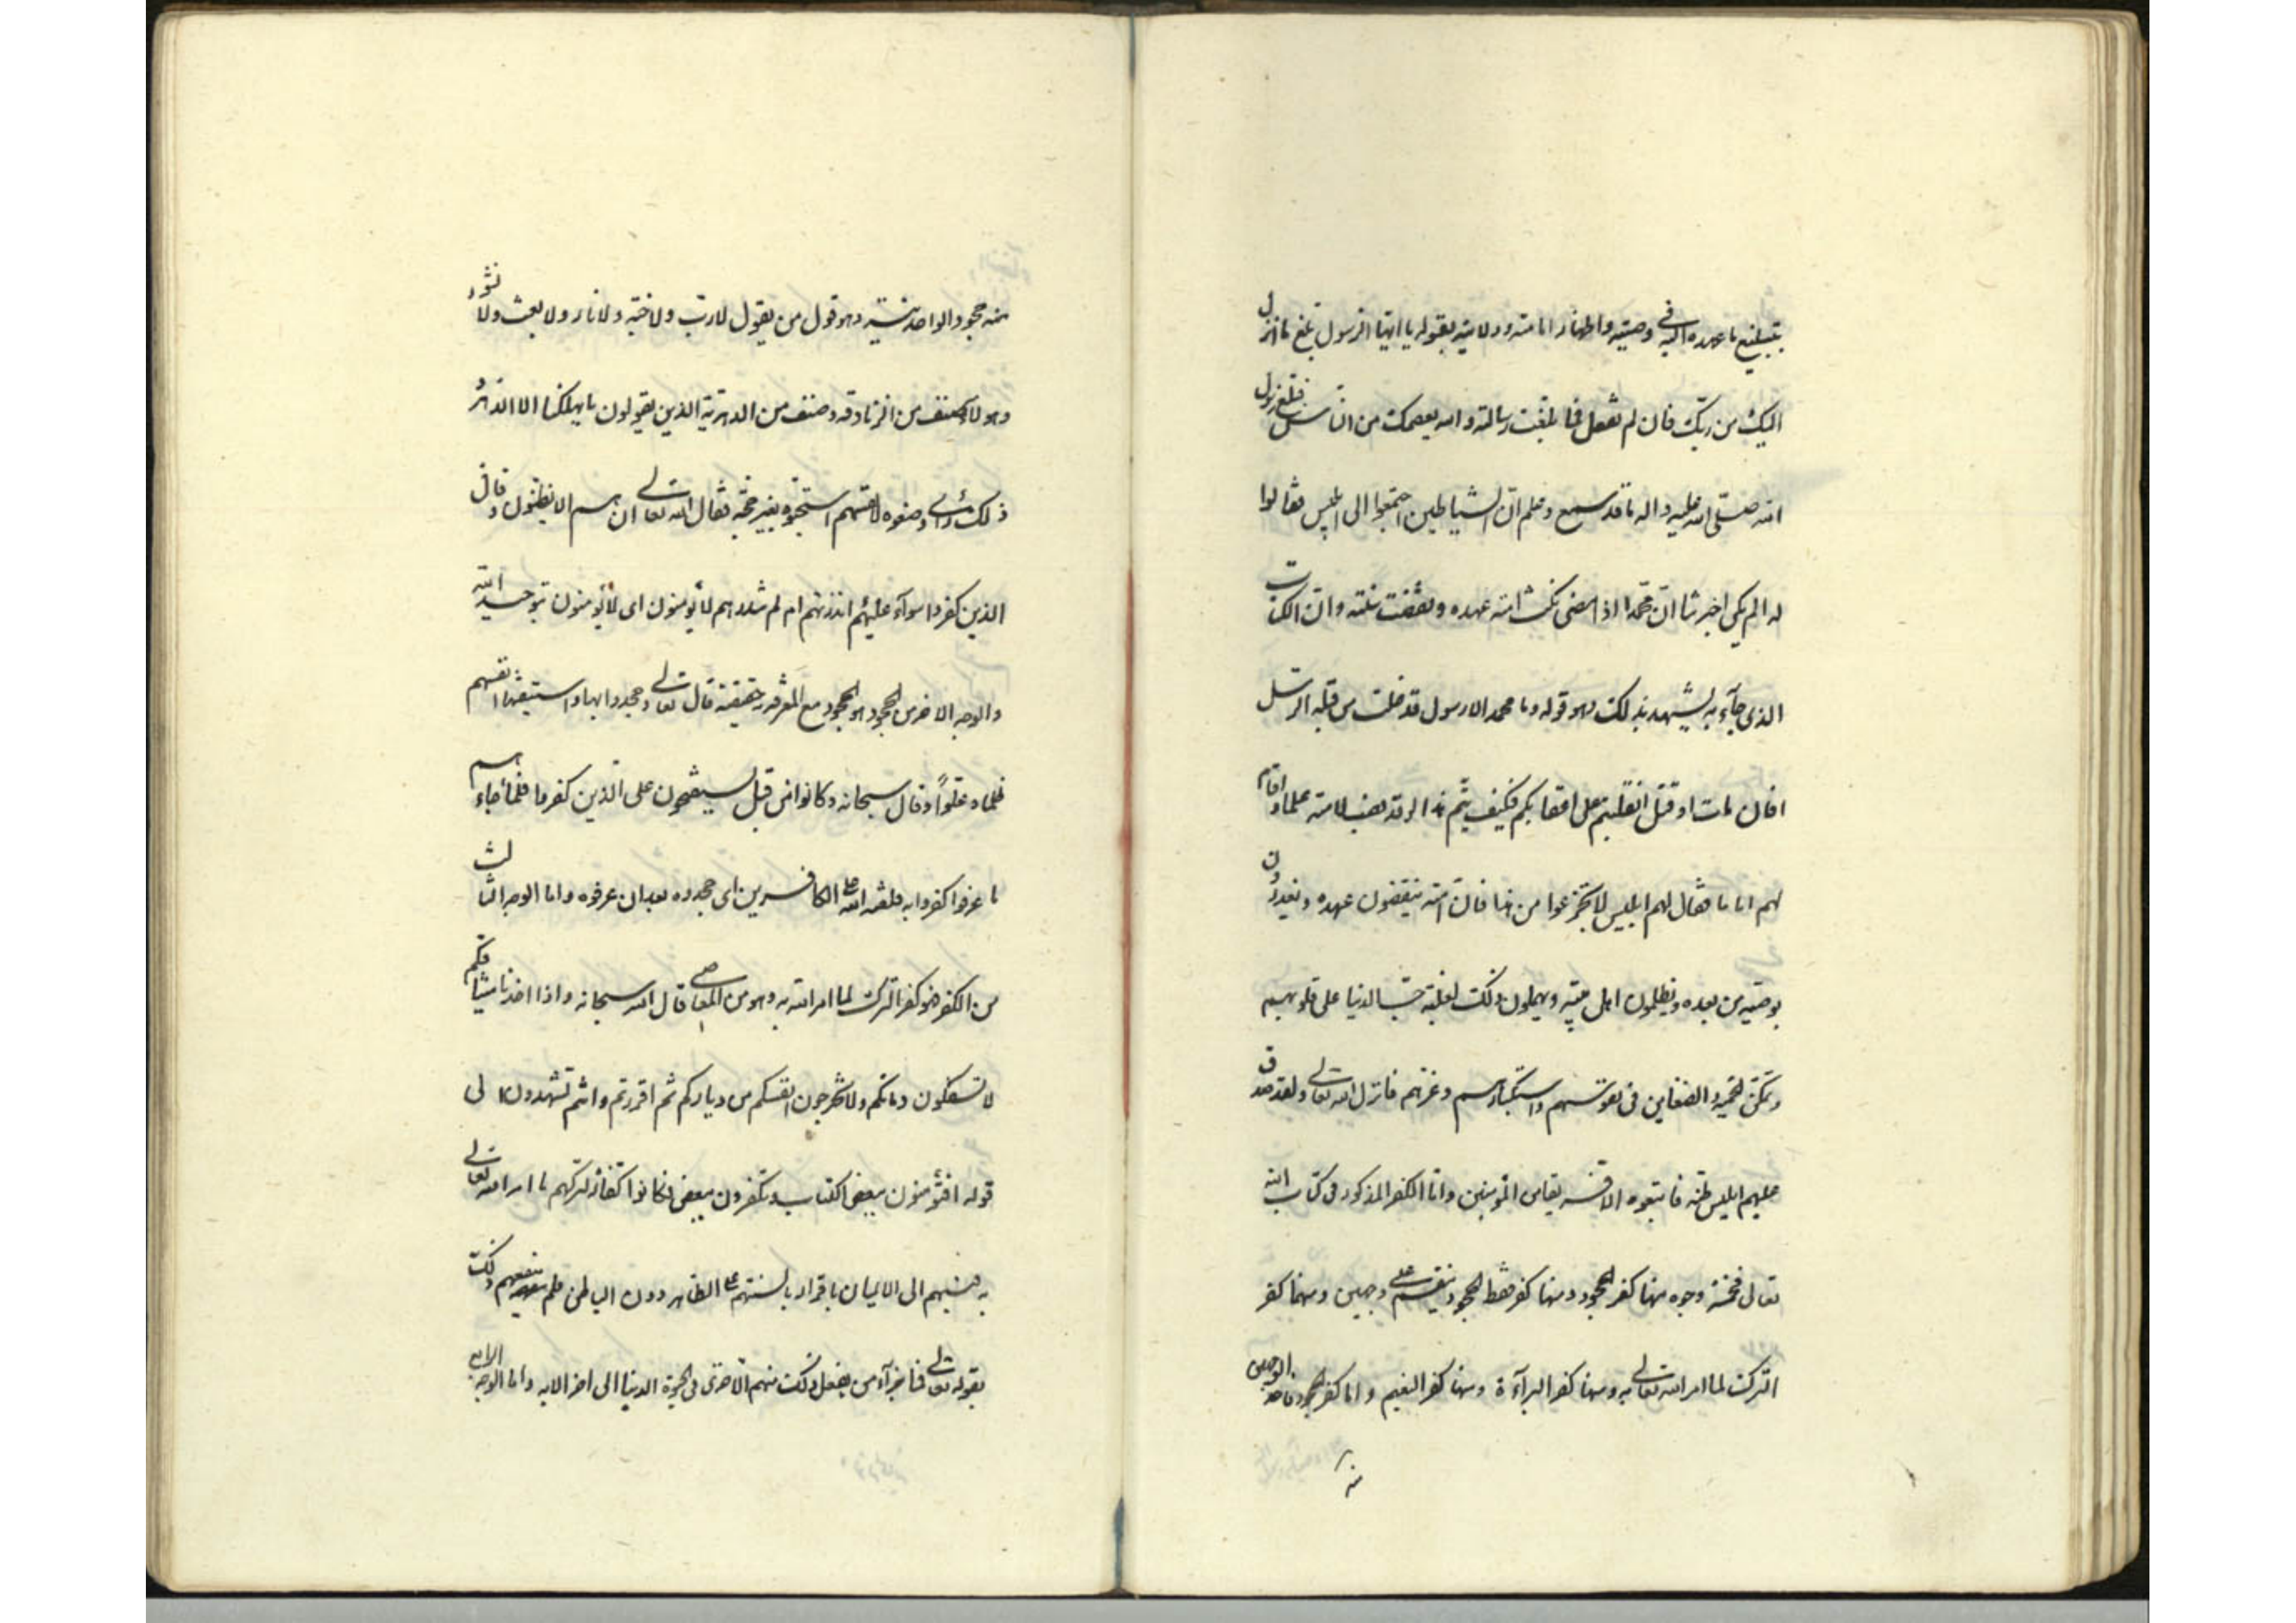 بتبليغ ما عهده اليه في وصيته واظهار امامته وولايته بقوله يا ايها الرسول بلغ ما انزل
اليك من ربك فان لم تفعل فما بلغت رسالته والله يعصمك من الناس فبلغ رسول
الله صلى الله عليه واله ما قد سمع وعلم ان الشياطين اجتمعوا الى ابليس فقالوا
له الم يكن اخبرتنا ان محمدا اذا مضى نكث امته عهده ونقضت سنته وان الكتاب
الذي جآء به يشهد بذلك وهو قوله وما محمد الا رسول قد خلت من قبله الرسل
افان مات او قتل انقلبتم على اعقابكم فكيف يتم هذا وقد نصب لامته علما واقام
لهم اماما فقال لهم ابليس لا تجزعوا من هذا فان امته ينقضون عهده ويغدرون
بوصيه من بعده ويظلمون اهل بيته ويهملون ذلك لغلبة حب الدنيا على قلوبهم
وتمكن الحمية والضغاين في نفوسهم واستكبارهم وعزهم فانزل الله تعالى ولقد صدق
عليهم ابليس ظنه فاتبعوه الا فريقا من المؤمنين واما الكفر المذكور في كتاب الله
تعالى فخمسة وجوه منها كفر الجحود ومنها كفر فقط الجحود ينقسم على وجهين ومنها كفر
الترك لما امر الله تعالى به ومنها كفر البرآءة ومنها كفر النعيم واما كفر الجحود فاحد الوجهين
منه
منه جحود الواحدنية وهو قول من يقول لا رب ولا جنة ولا نار ولا بعث ولا نشور
وهولآء صنف من الزنادقة وصنف من الدهرية الذين يقولون ما يهلكنا الا الدهر
ذلك رأى وضعوه لانفسهم استحسنوه بغير حجة فقال الله تعالى ان هم الا يظنون وقال
الذين كفروا سوآء عليهم اءنذرتهم ام لم تنذرهم لا يؤمنون اى لا يؤمنون بتوحيد الله
والوجه الاخر من الجحود هو الجحود مع المعرفة بحقيقته قال تعالى وجحدوا بها واستيقنتها انفسهم
ظلما وعلوًا وقال سبحانه وكانوا من قبل يستفتحون على الذين كفروا فلما جاءهم
ما عرفوا كفروا به فلعنة الله على الكافرين اى جحدوه بعد ان عرفوه واما الوجه الثالث
من الكفر فهو كفر الترك لما امر الله به وهو من المعاصي قال الله سبحانه واذا اخذنا ميثاقكم
لا تسفكون دمائكم ولا تخرجون انفسكم من دياركم ثم اقررتم وانتم تشهدون الى
قوله افتؤمنون ببعض الكتاب وتكفرون ببعض فكانوا كفارا لتركهم ما امر الله تعالى
به فنسبهم الى الايمان باقرارهم بالسنتهم على الظاهر دون الباطن فلم ينفعهم ذلك
بقوله تعالى فما جزآء من يفعل ذلك منهم الا خزى في الحيوة الدنيا الى اخر الايه واما الوجه الرابع